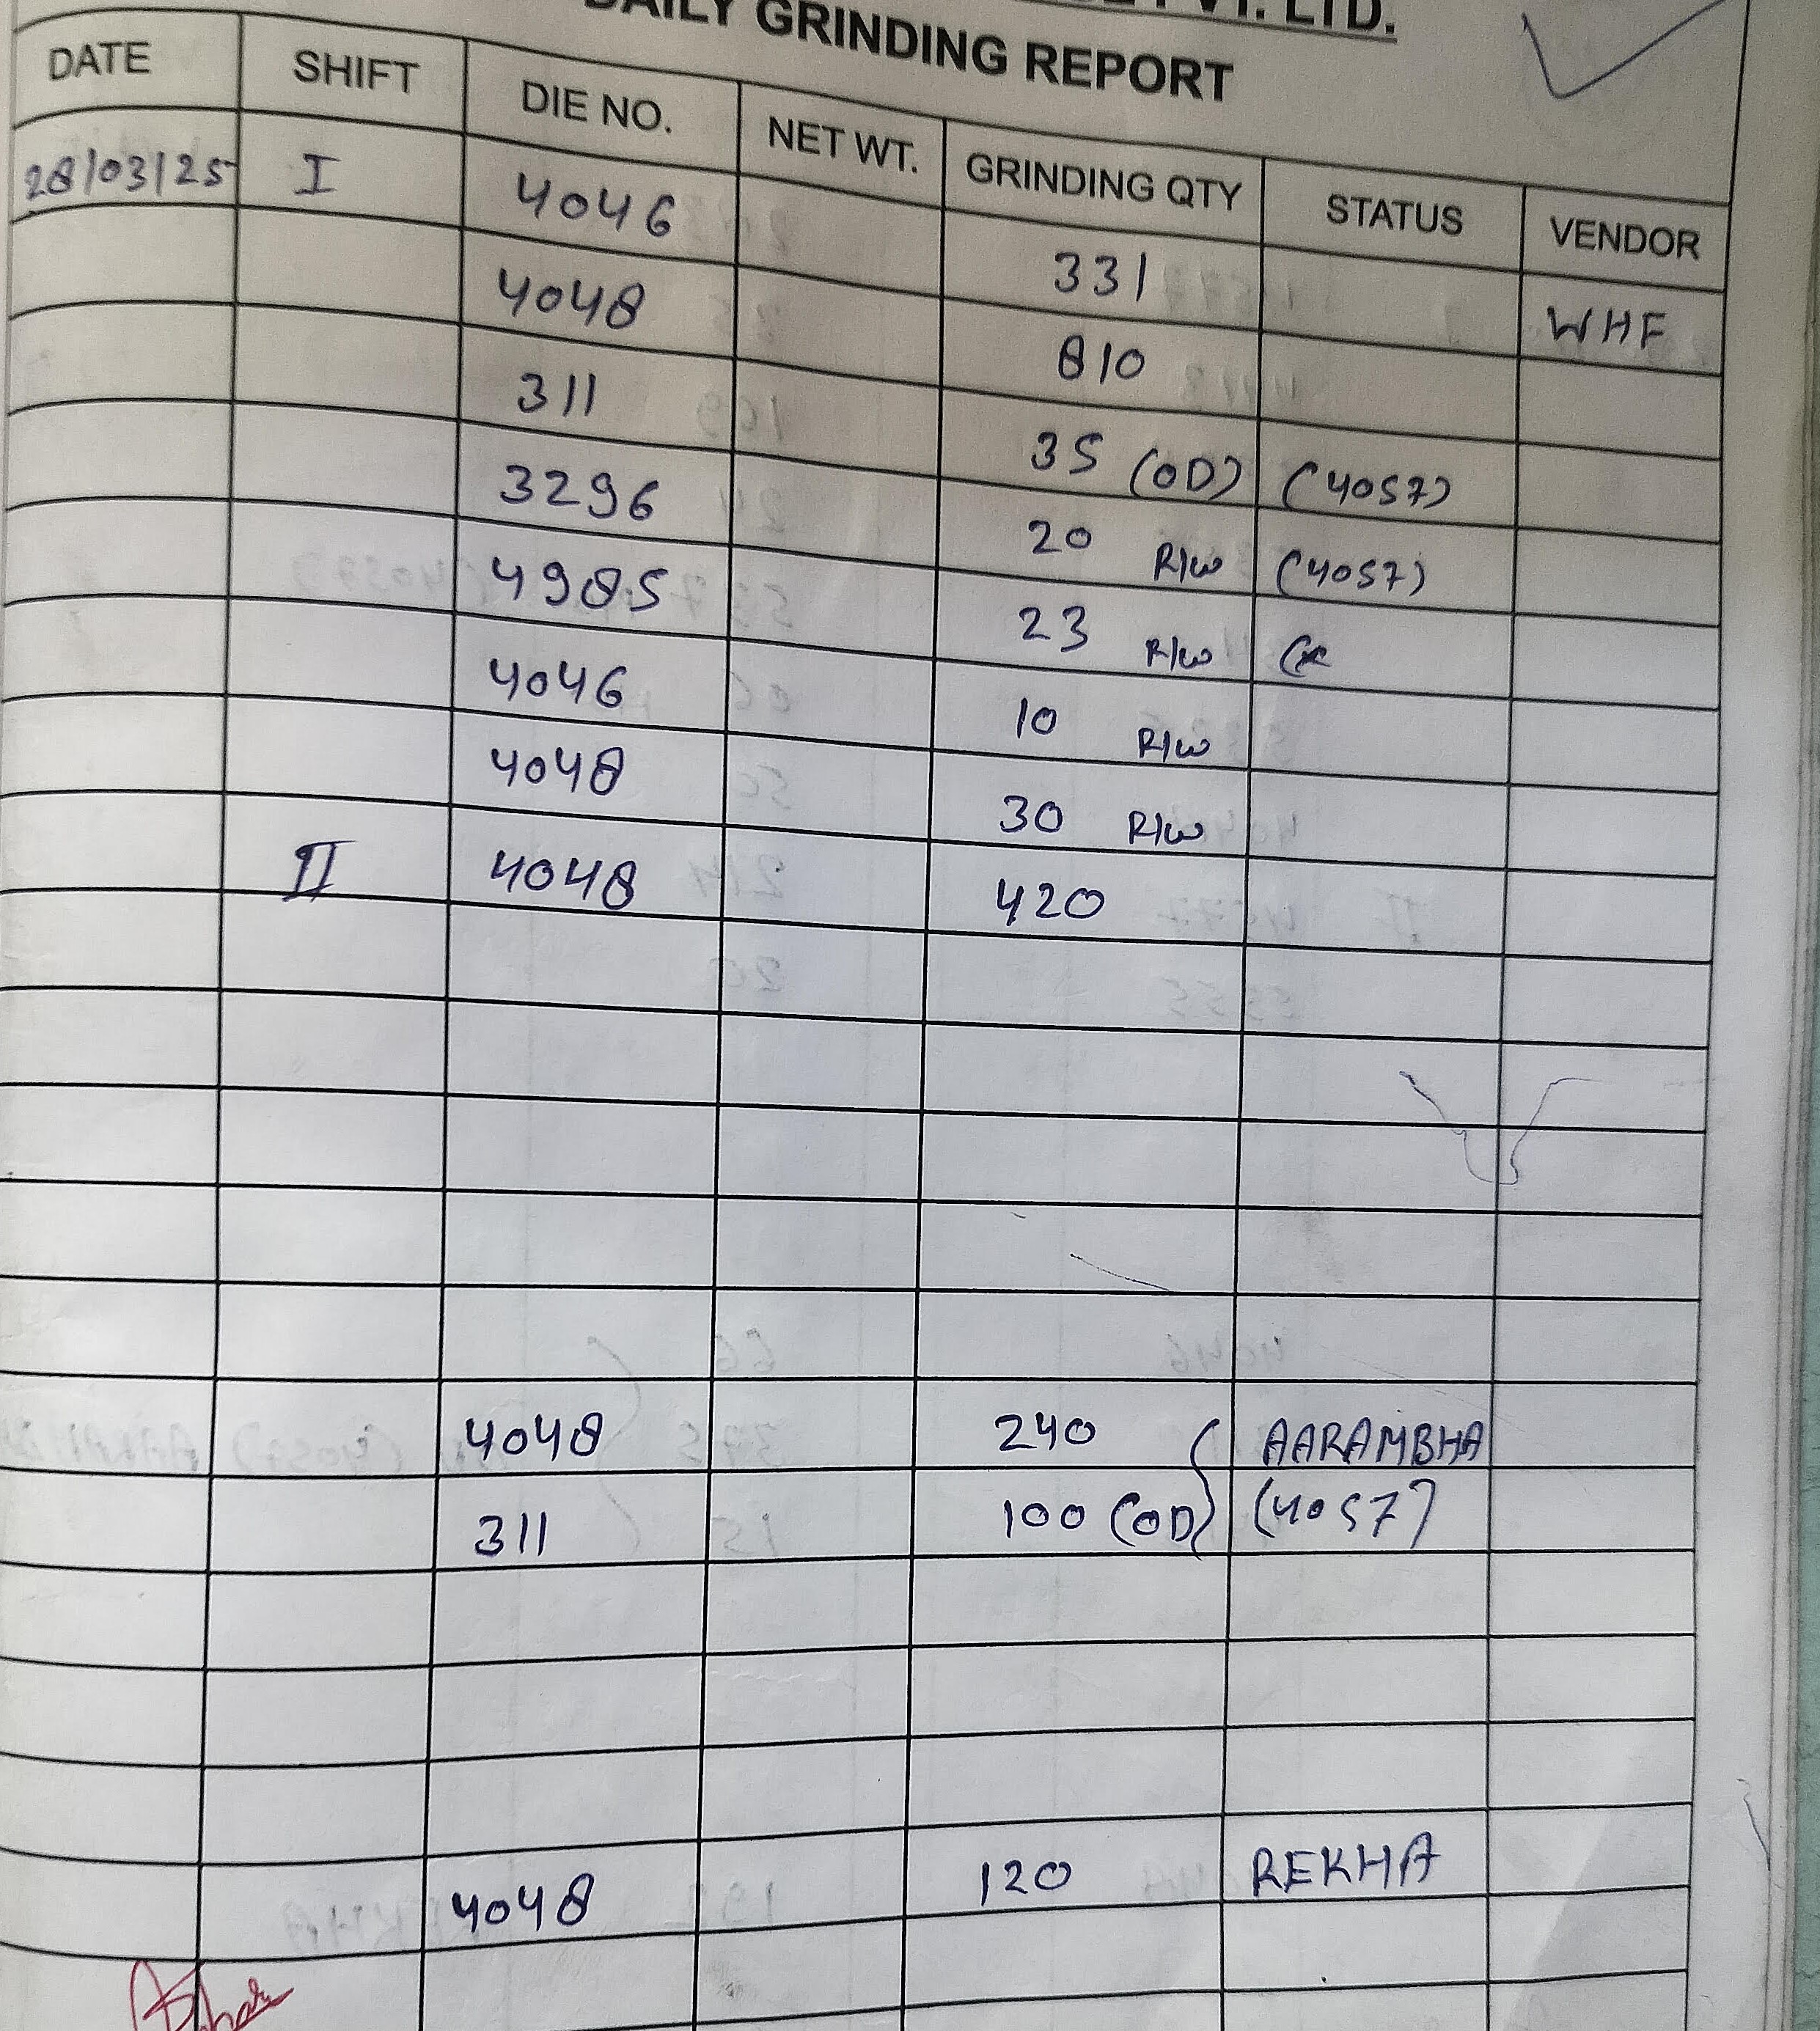 PVT. LTD.
DAILY GRINDING REPORT
DATE SHIFT DIE NO. NET WT. GRINDING QTY STATUS VENDOR
28/03/25 I 4046 331 WHF
4048 810
311 35 (OD) (4057)
3296 20 R/w (4057)
4985 23 R/w
4046 10 R/w
4048 30 R/w
II 4048 420
4048 240 AARAMBHA
311 100 (OD) (4057)
4048 120 REKHA